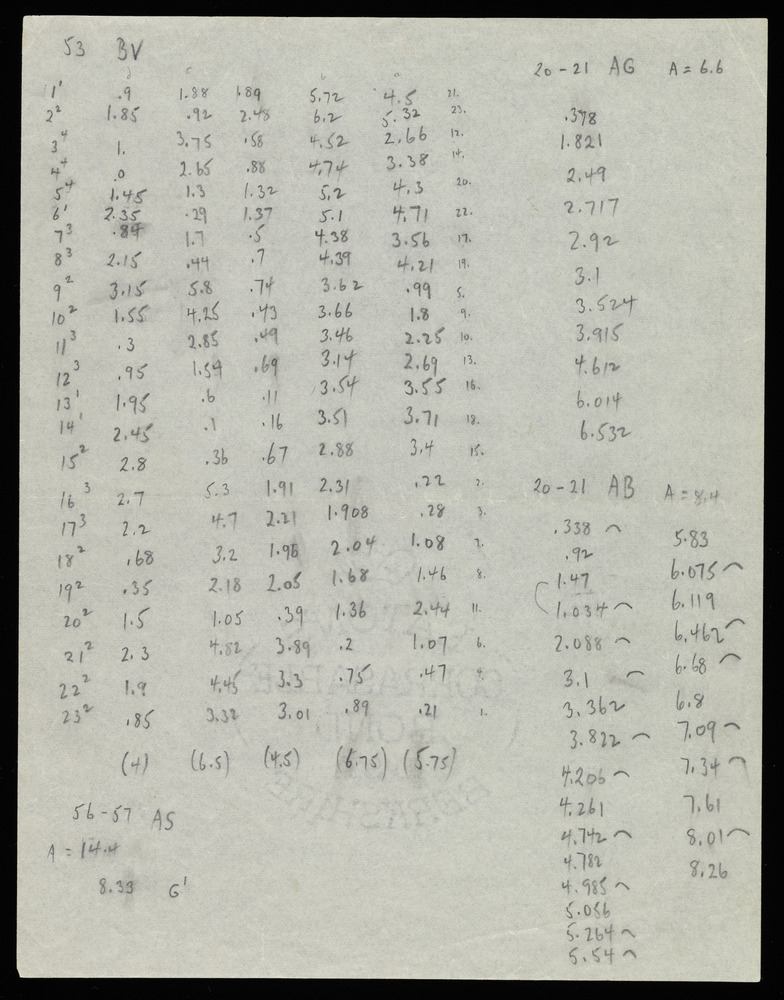 53 BV
d c b a
1¹ .9 1.88 1.89 5.72 4.5 21.
2² 1.85 .92 2.48 6.2 5.32 23.
3⁴ 1. 3.75 .58 4.52 2.66 12.
4⁴ .0 2.65 .88 4.74 3.38 14.
5⁴ 1.45 1.3 1.32 5.2 4.3 20.
6¹ 2.35 .29 1.37 5.1 4.71 22.
7³ .84 1.7 .5 4.38 3.56 17.
8³ 2.15 .44 .7 4.39 4.21 19.
9² 3.15 5.8 .74 3.62 .99 5.
10² 1.55 4.25 .43 3.66 1.8 9.
11³ .3 2.85 .49 3.46 2.25 10.
12³ .95 1.54 .69 3.14 2.69 13.
13¹ 1.95 .6 .11 3.54 3.55 16.
14¹ 2.45 .1 .16 3.51 3.71 18.
15² 2.8 .36 .67 2.88 3.4 15.
16³ 2.7 5.3 1.91 2.31 .22 2.
17³ 2.2 4.7 2.21 1.908 .28 3.
18² .68 3.2 1.96 2.04 1.08 7.
19² .35 2.18 2.05 1.68 1.46 8.
20² 1.5 1.05 .39 1.36 2.44 11.
21² 2.3 4.82 3.89 .2 1.07 6.
22² 1.9 4.45 3.3 .75 .47 4.
23² .85 3.32 3.01 .89 .21 1.
(4) (6.5) (4.5) (6.75) (5.75)
56-57 AS
A = 14.4
8.33 G¹
20-21 AG A = 6.6
.378
1.821
2.49
2.717
2.92
3.1
3.524
3.915
4.612
6.014
6.532
20-21 AB A = 8.4
.338 ⌒
.92
1.47
1.034 ⌒
2.088 ⌒
3.1 ⌒
3.362
3.822 ⌒
4.206 ⌒
4.261
4.742 ⌒
4.782
4.985 ⌒
5.056
5.264 ⌒
5.54 ⌒
5.83
6.075 ⌒
6.119
6.462 ⌒
6.68 ⌒
6.8
7.09 ⌒
7.34 ⌒
7.61
8.01 ⌒
8.26